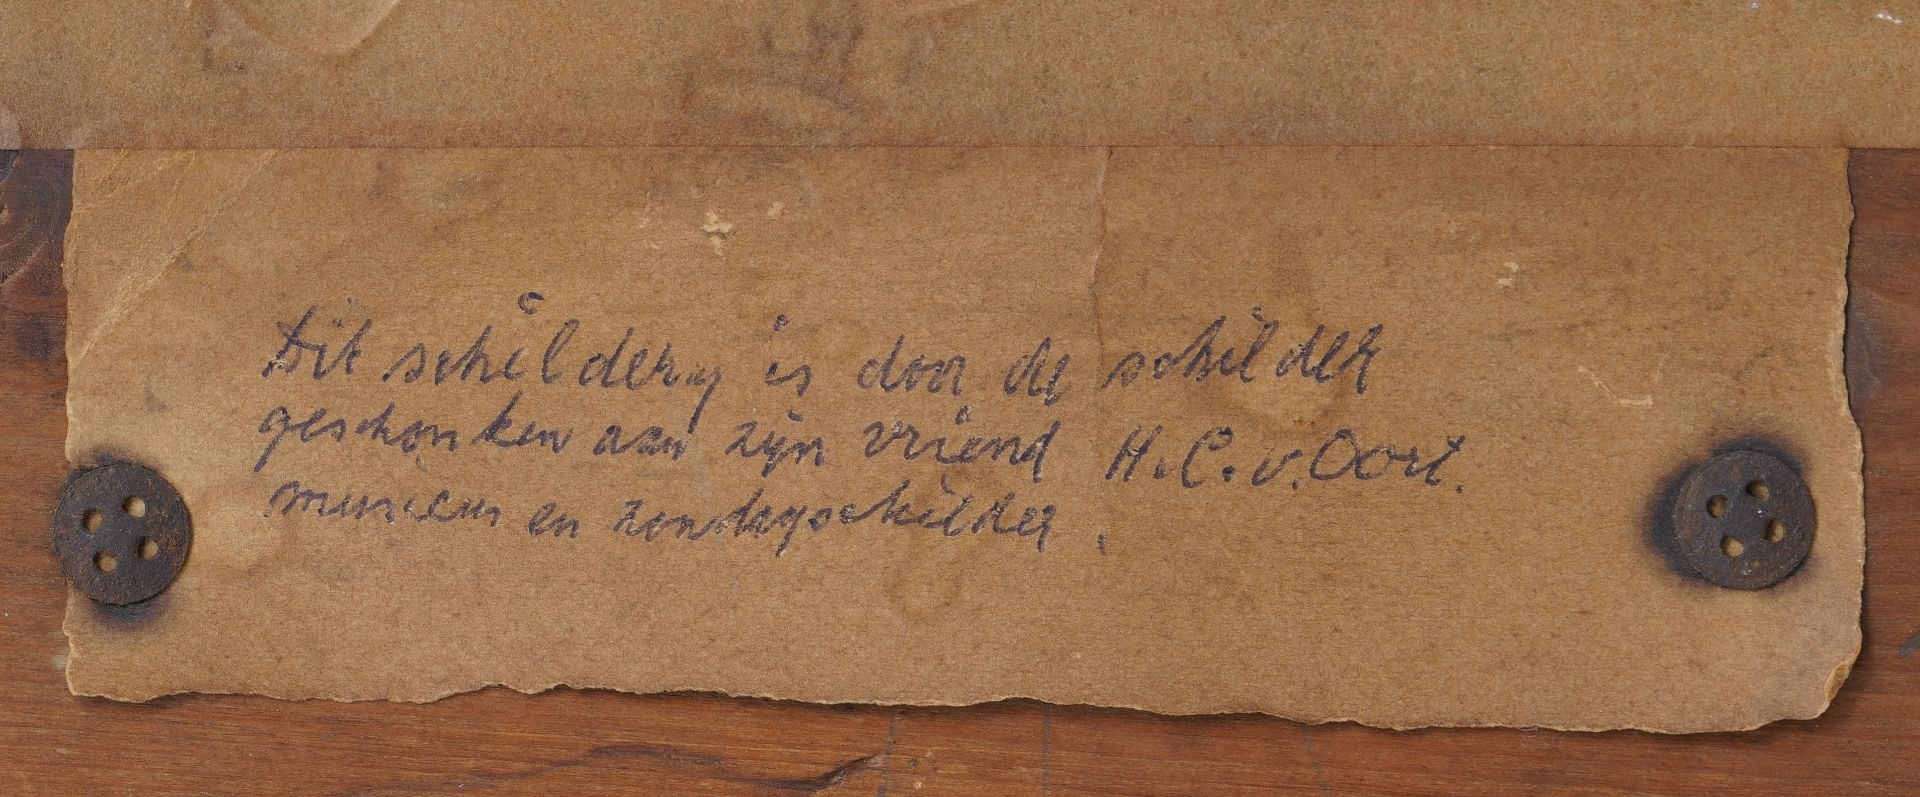 Dit schildery is door de schilder
geschonken aan zijn vriend H. C. v. Oort.
musicus en zondagschilder.